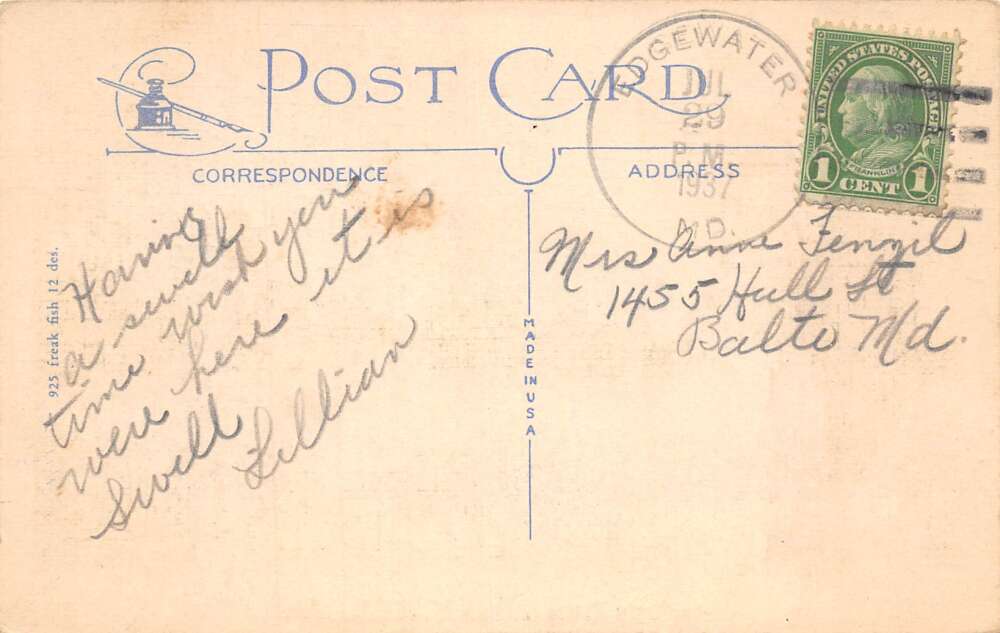 POST CARD
EDGEWATER
JUL
29
P.M.
1937
MD.
UNITED STATES POSTAGE
FRANKLIN
1 CENT 1
CORRESPONDENCE
ADDRESS
Having
a swell
time wish you
were here it is
Swell
Lillian
Mrs Anne Fengil
1455 Hull St
Balto Md.
925 freak fish 12 des.
MADE IN USA